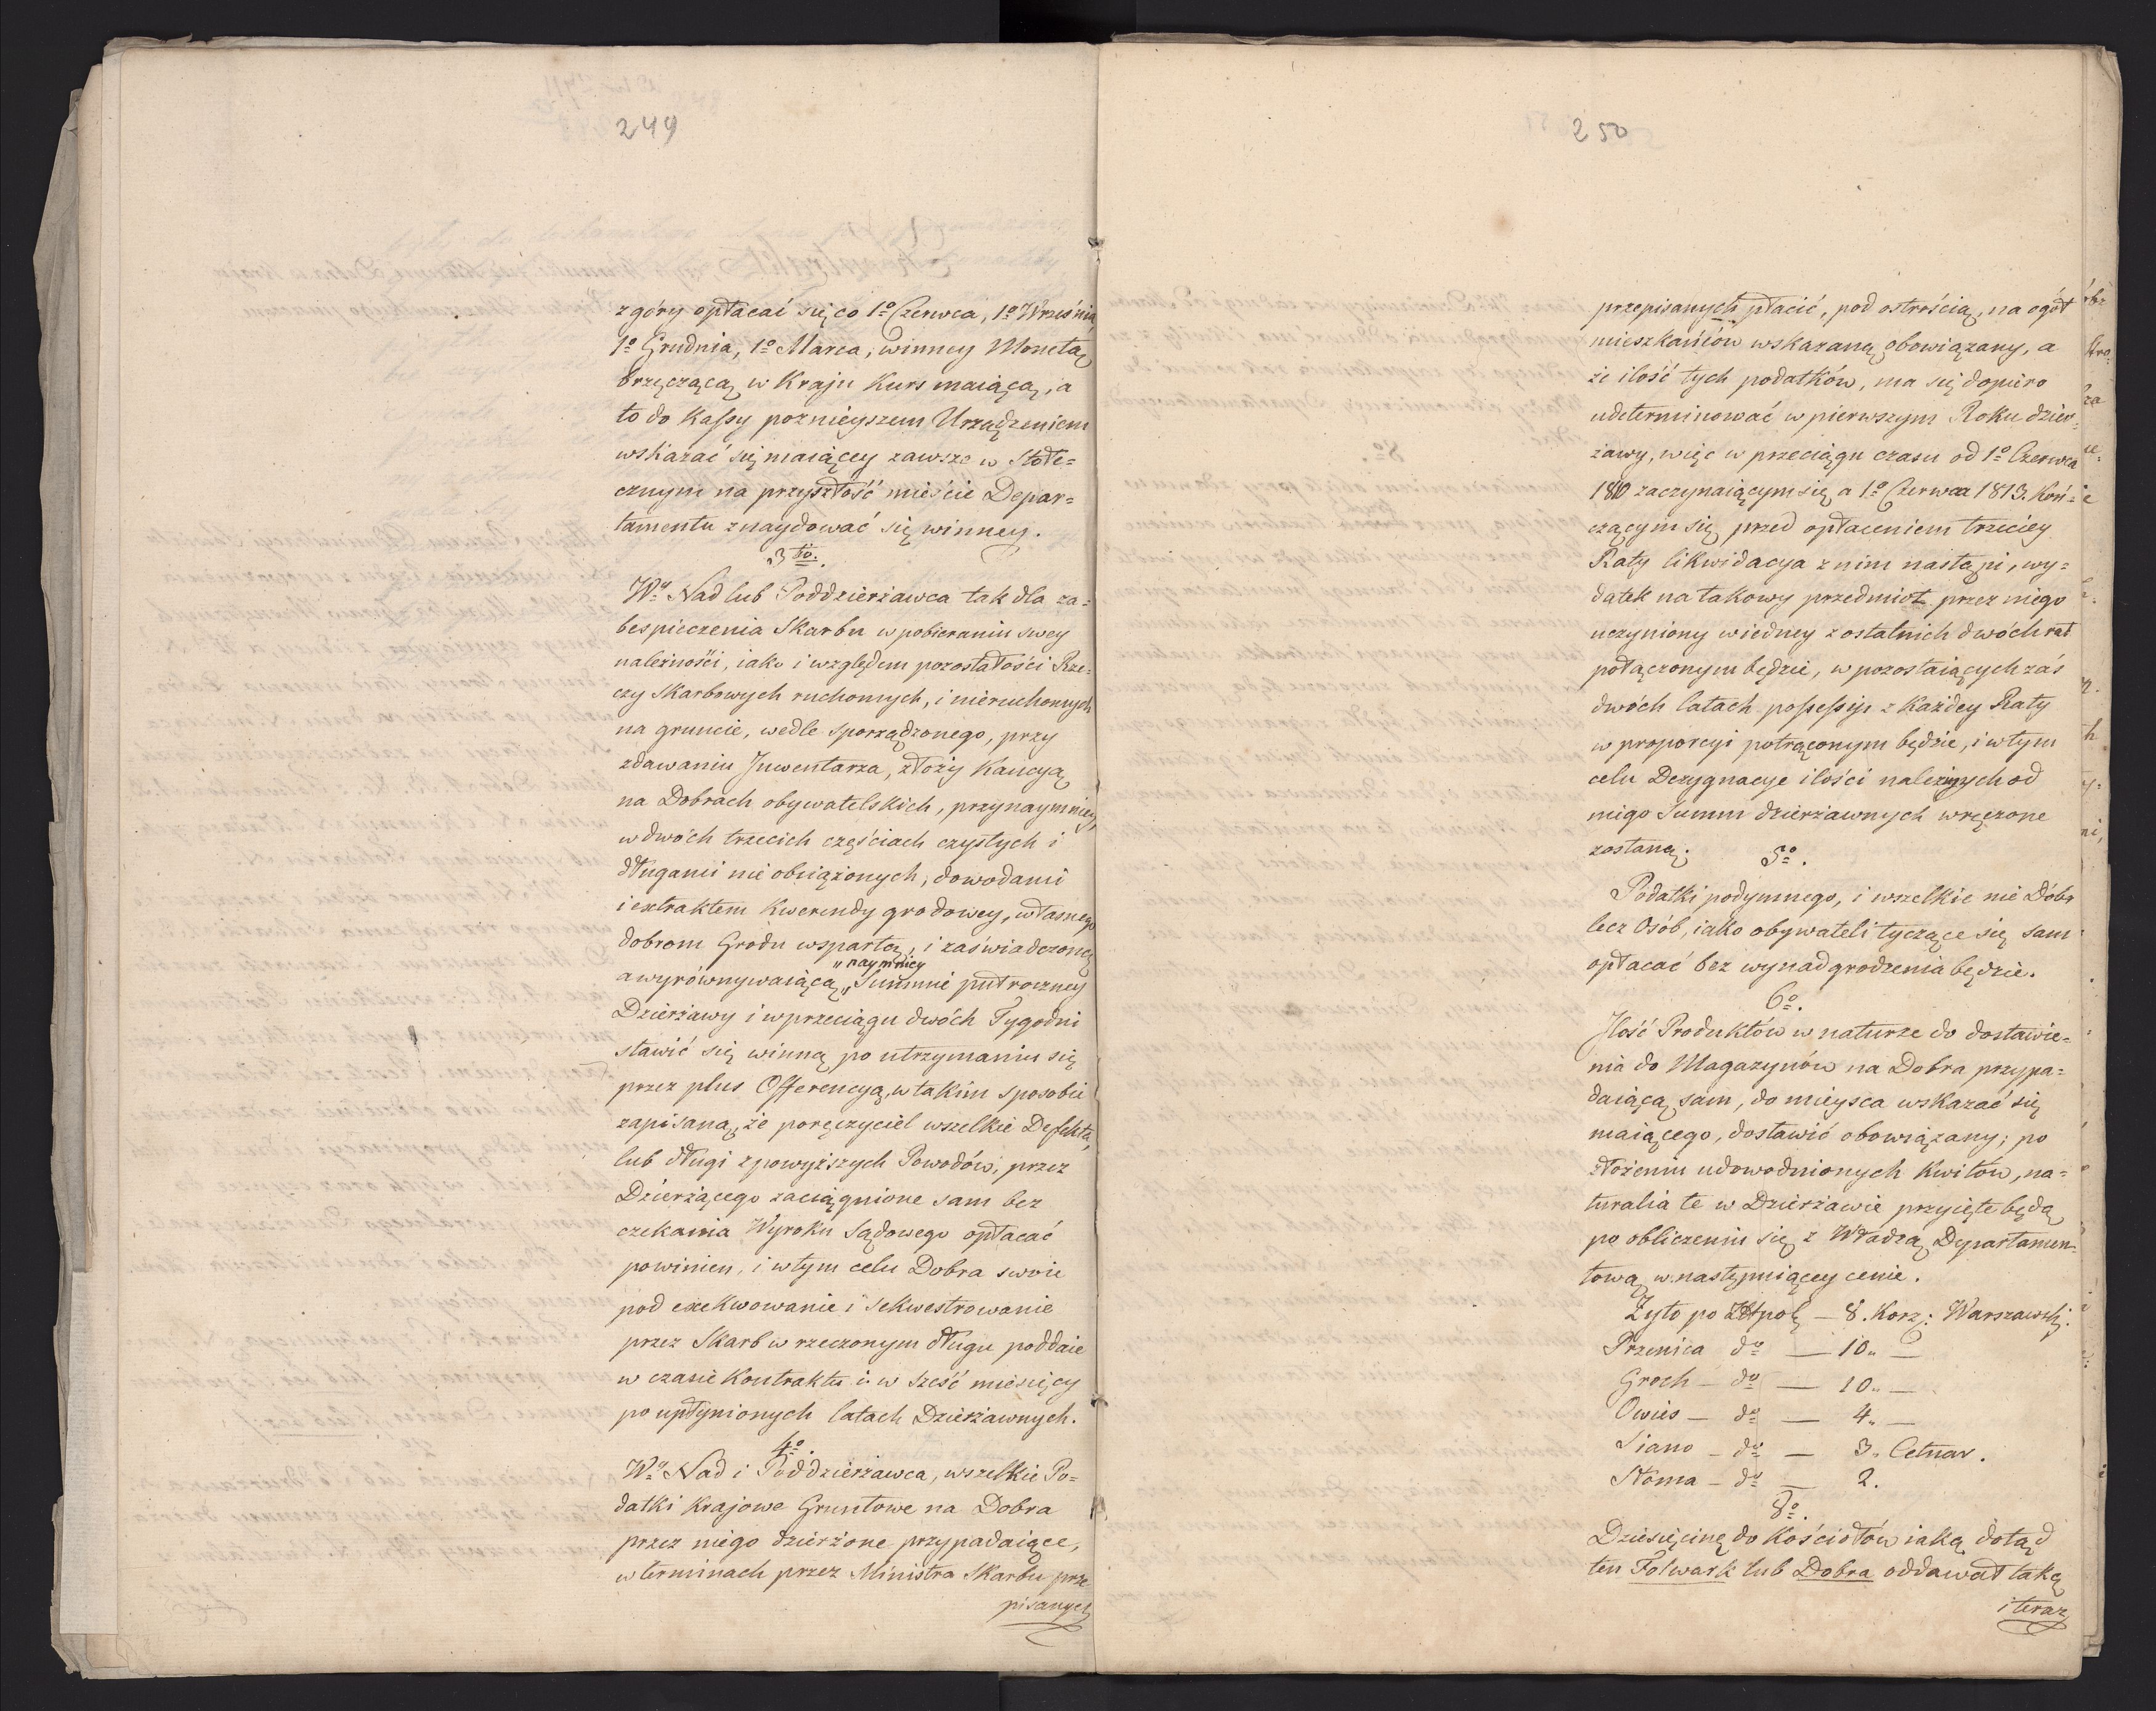 249
z góry opłacać się co 1o Czerwca, 1o Września
1o Grudnia, 1o Marca, winney Monetą
brzęczącą w Kraju Kurs maiącą, a
to do Kassy poznieyszem Urządzeniem
wskazać się maiącey zawsze w Stołe=
cznym na przyszłość mieście Depar=
tamentu znaydować się winney.
3tio.
Wy Nad lub Poddzierżawca tak dla za=
bespieczenia Skarbu w pobieraniu swey
należności, iako i względem pozostałości Rze=
czy Skarbowych ruchomych, i nieruchomych
na gruncie, wedle sporządzonego, przy
zdawaniu Inwentarza, złoży Kaucyą
na Dobrach obywatelskich, przynaymniey,
w dwóch trzecich częściach czystych i
długami nie obciążonych, dowodami
i extraktem Kwerendy grodowey, własnego
dobrom Grodu wspartą, i zaświadczoną
"naymniey
a wyrównywaiącą "Summie półroczney
Dzierżawy i w przeciągu dwóch Tygodni
stawić się winną po utrzymaniu się
przez plus Offerencyą, w takim sposobie
zapisaną, że poręczyciel wszelkie Defekta,
lub długi z powyższych Powodów, przez
Dzierżącego zaciągnione sam bez
czekania Wyroku Sądowego opłacać
powinien, i w tym celu Dobra swoie
pod exekwowanie i sekwestrowanie
przez Skarb w rzeczonym długu poddaie
w czasie Kontraktu i w sześć miesięcy
po upłynionych latach Dzierżawnych.
4o.
Wy Nad i Poddzierżawca, wszelkie Po=
datki Krajowe Gruntowe na Dobra
przez niego dzierżone przypadaiące,
w terminach przez Ministra Skarbu prze
pisanych
250
przepisanych płacić, pod ostrością, na ogół
mieszkańców wskazaną obowiązany, a
że ilość tych podatków, ma się dopiero
udeterminować w pierwszym Roku dzier=
żawy, więc w przeciągu czasu od 1o Czerwca
1810 zaczynaiącym się a 1o Czerwca 1813. Koń=
czącym się przed opłaceniem trzeciey
Raty likwidacya z nim nastąpi, wy=
datek na takowy przedmiot przez niego
uczyniony w iedney z ostatnich dwóch rat
połączonym będzie, w pozostaiących zaś
dwóch latach possessyi z Każdey Raty
w proporcyi potrąconym będzie, i w tym
celu Dezygnacye ilości należnych od
niego Summ dzierżawnych wręczone
zostaną.
5o.
Podatki podymnego, i wszelkie nie Dóbr
lecz Osób, iako obywateli tyczące się sam
opłacać bez wynadgrodzenia będzie.
6o.
Ilość Produktów w naturze do dostawie=
nia do Magazynów na Dobra przypa=
daiącą sam, do mieysca wskazać się
maiącego, dostawić obowiązany; po
złożeniu udowodnionych Kwitów, na=
turalia te w Dzierżawie przyięte będą
po obliczeniu się z Władzą Departamen=
tową w następuiącey cenie.
Żyto po Złpol — 8. Korz: Warszawski:
Pszenica do — 10„ —
Groch — do — 10„ —
Owies — do — 4„ —
Siano — do — 3„ Cetnar.
Słoma — do — 2.
8o.
Dziesięcinę do Kościołów iaką dotąd
ten Folwark lub Dobra oddawał taką
i teraz